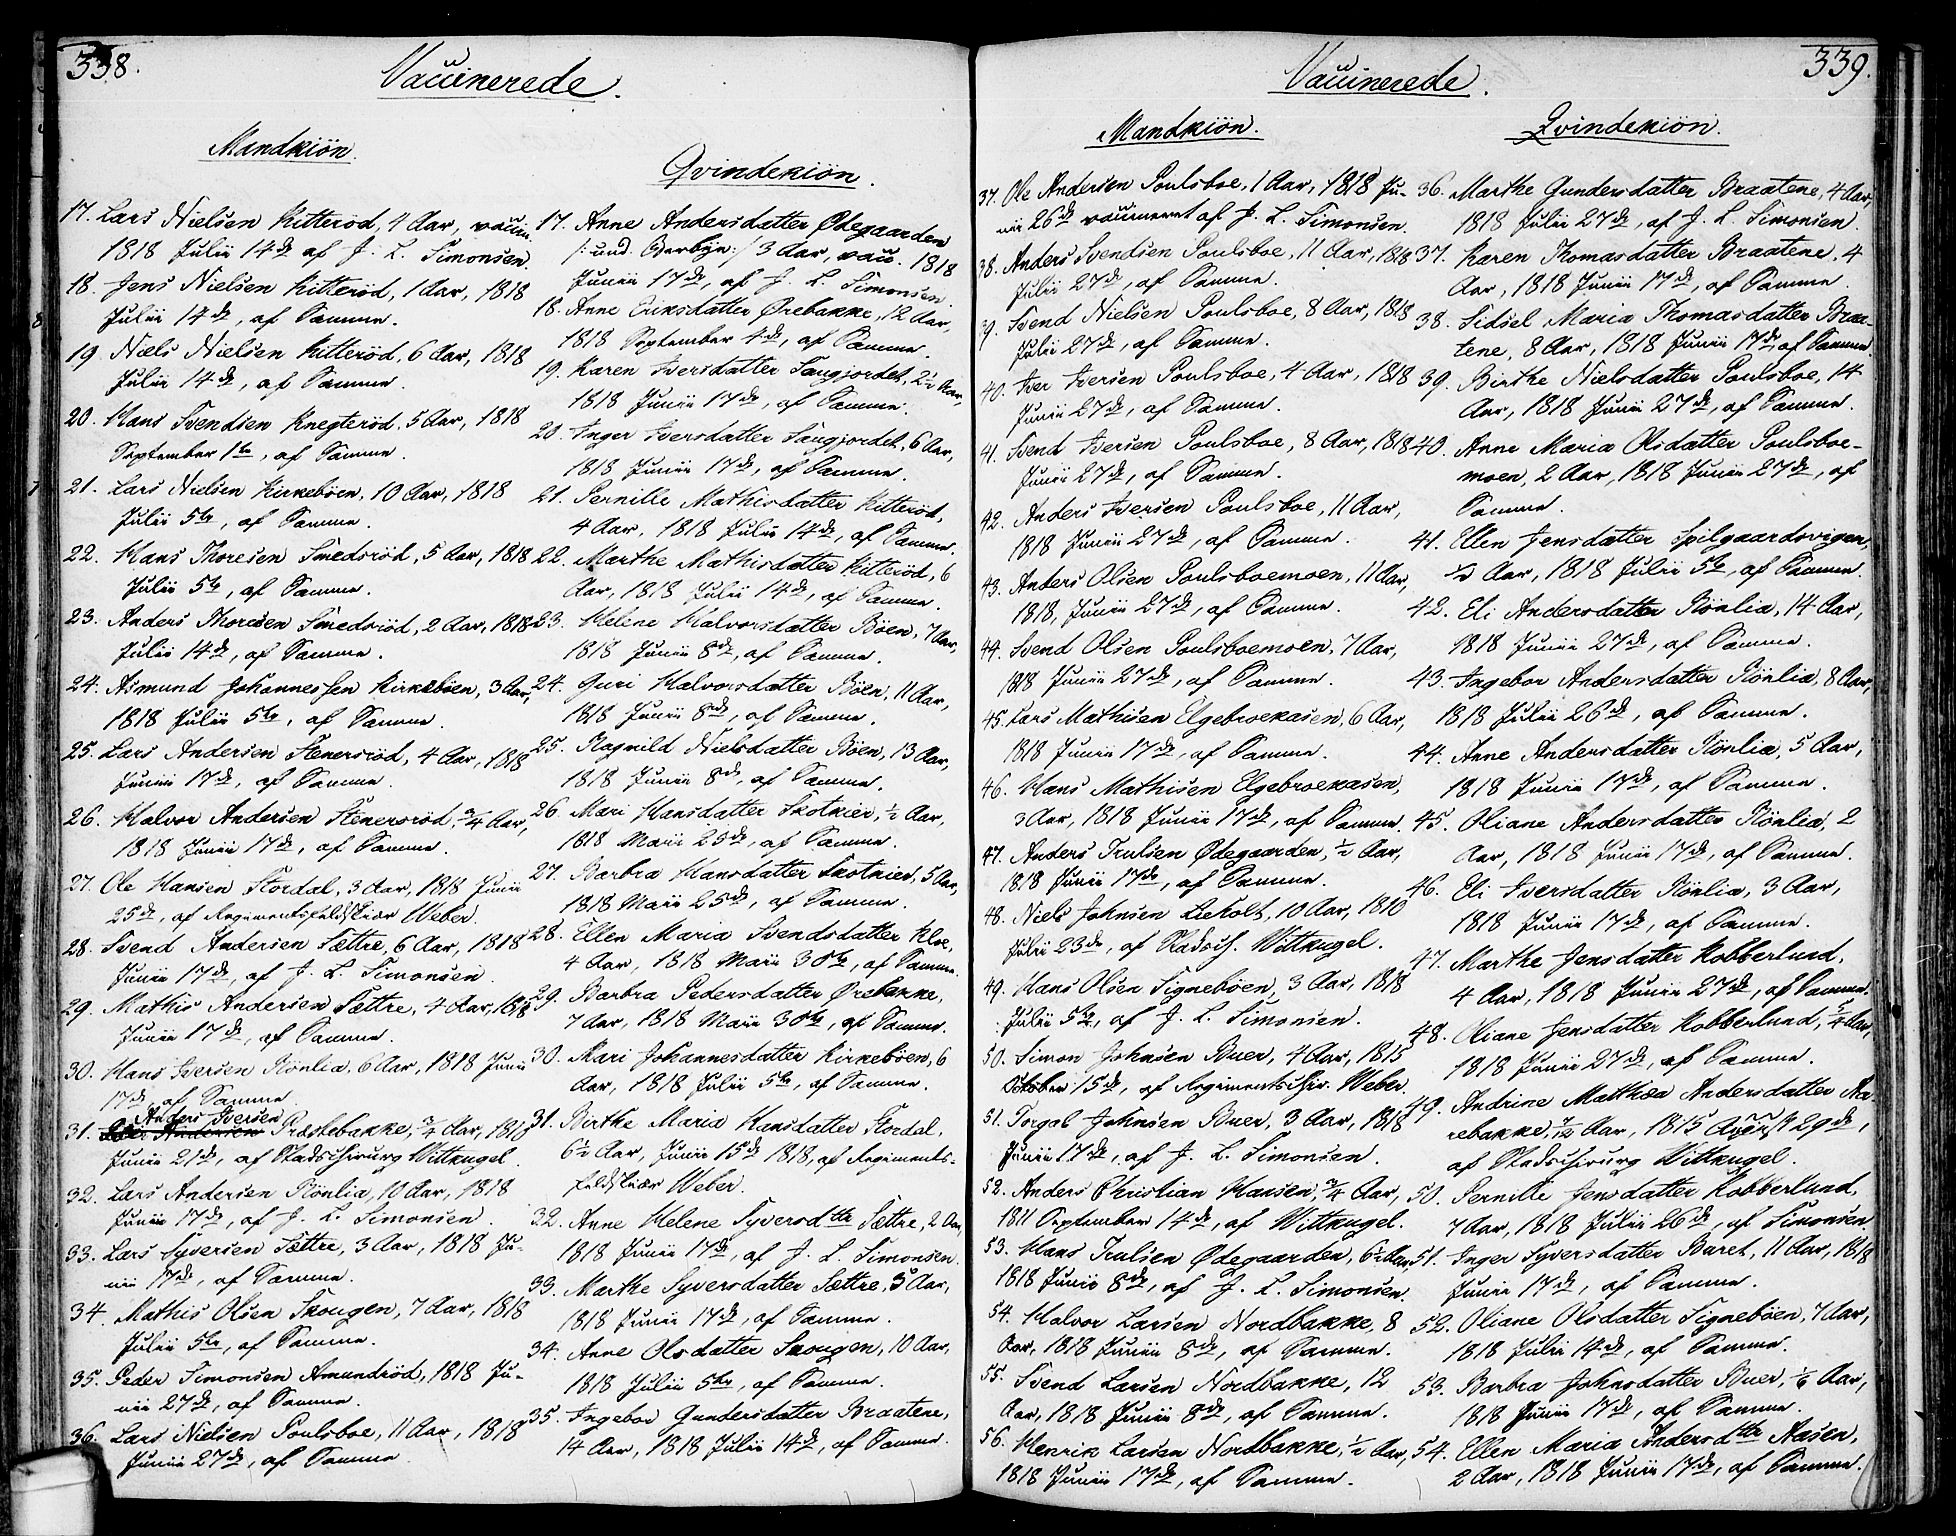 338.
Vaccinerede.
Mandkiön.
17. Lars Nielsen Kitteröd, 4 Aar, vaccin.
1818 Julii 14de af J. L. Simonsen.
18. Jens Nielsen Kitteröd, 1 Aar, 1818
Julii 14de, af Samme.
19. Niels Nielsen Kitteröd, 6 Aar, 1818
Julii 14de, af Samme.
20. Hans Svendsen Knegteröd, 5 Aar, 1818
September 1te, af Samme.
21. Lars Nielsen Kirkebøen, 10 Aar, 1818
Julii 5te, af Samme.
22. Hans Thoresen Smedsröd, 5 Aar, 1818
Julii 5te, af Samme.
23. Anders Thoresen Smedsröd, 2 Aar, 1818
Julii 14de, af Samme.
24. Asmund Johannessen Kirkebøen, 3 Aar,
1818 Julii 5te, af Samme.
25. Lars Andersen Stenersröd, 4 Aar, 1818
Junii 17de, af Samme.
26. Halvor Andersen Stenersröd, 3/4 Aar,
1818 Junii 17de, af Samme.
27. Ole Hansen Stordal, 3 Aar, 1818 Junii
25de, af Regimentsfeldskiær Weber.
28. Svend Andersen Sættre, 6 Aar, 1818
Junii 17de, af J. L. Simonsen.
29. Mathis Andersen Sættre, 4 Aar, 1818
Junii 17de, af Samme.
30. Hans Iversen Rönlia, 6 Aar, 1818 Junii
17de, af Samme.
Anders Iversen
31. Iver Andersen Præstebakke, 3/4 Aar, 1818
Junii 21de, af Stadschirurg Wittkugel.
32. Lars Andersen Rönlia, 10 Aar, 1818
Junii 17de, af J. L. Simonsen.
33. Lars Syversen Sættre, 3 Aar, 1818 Ju-
nii 17de, af Samme.
34. Mathis Olsen Skougen, 7 Aar, 1818
Julii 5te, af Samme.
35. Peder Simonsen Amundröd, 1818 Ju-
nii 27de, af Samme.
36. Lars Nielsen Poulsboe, 11 Aar, 1818
Junii 27de, af Samme.
Qvindekiön.
17. Anne Andersdatter Ødegaarden
/: und. Berbye :/ 3 Aar, vacc. 1818
Junii 17de, af J. L. Simonsen.
18. Anne Eriksdatter Ørebakke, 12 Aar,
1818 September 4de, af Samme.
19. Karen Iversdatter Saugjordet, 2 1/2 Aar,
1818 Junii 17de, af Samme.
20. Inger Iversdatter Saugjordet, 6 Aar,
1818 Junii 17de, af Samme.
21. Pernille Mathisdatter Kitteröd,
4 Aar, 1818 Julii 14de, af Samme.
22. Marthe Mathisdatter Kitteröd, 6
Aar, 1818 Julii 14de, af Samme.
23. Helene Halvorsdatter Bøen, 7 Aar,
1818 Junii 8de, af Samme.
24. Guri Halvorsdatter Bøen, 11 Aar,
1818 Junii 8de, af Samme.
25. Ragnild Nielsdatter Bøen, 13 Aar,
1818 Junii 8de, af Samme.
26. Mari Hansdatter Skotkier, 1/2 Aar,
1818 Maii 25de, af Samme.
27. Barbra Hansdatter Skotkier, 5 Aar,
1818 Maii 25de, af Samme.
28. Ellen Maria Svendsdatter Kloe,
4 Aar, 1818 Maii 30te, af Samme.
29. Barbra Pedersdatter Ørebakke,
7 Aar, 1818 Maii 30te, af Samme.
30. Kari Johannesdatter Kirkebøen, 6
Aar, 1818 Julii 5te, af Samme.
31. Birthe Maria Hansdatter Stordal,
6 1/2 Aar, Junii 15de 1818, af Regiments-
feldskiær Weber.
32. Anne Helene Syversdttr Sættre, 2 Aar,
1818 Junii 17de, af J. L. Simonsen.
33. Marthe Syversdatter Sættre, 5 Aar,
1818 Junii 17de, af Samme.
34. Anne Olsdatter Skougen, 10 Aar,
1818 Julii 5te, af Samme.
35. Ingebor Gundersdatter Braatene,
14 Aar, 1818 Julii 14de, af Samme.
339.
Vaccinerede.
Mandkiön.
37. Ole Andersen Poulsboe, 1 Aar, 1818 Ju-
nii 26de vaccineret af J. L. Simonsen.
38. Anders Svendsen Poulsboe, 11 Aar, 1818
Julii 27de, af Samme.
39. Svend Nielsen Poulsboe, 8 Aar, 1818
Julii 27de, af Samme.
40. Iver Iversen Poulsboe, 4 Aar, 1818
Junii 27de, af Samme.
41. Svend Iversen Poulsboe, 8 Aar, 1818
Junii 27de, af Samme.
42. Anders Iversen Poulsboe, 11 Aar,
1818 Junii 27de, af Samme.
43. Anders Olsen Poulsboemoen, 11 Aar,
1818, Junii 27de, af Samme.
44. Svend Olsen Poulsboemoen, 7 Aar,
1818 Junii 27de, af Samme.
45. Lars Mathisen Elgebroekasen, 6 Aar,
1818 Junii 17de, af Samme.
46. Hans Mathisen Elgebroekasen,
3 Aar, 1818 Junii 17de, af Samme.
47. Anders Trulsen Ødegaarden, 1/2 Aar,
1818 Junii 17de, af Samme.
48. Niels Johnsen Lieholt, 10 Aar, 1810
Julii 23de, af Stadsch. Wittkugel.
49. Hans Olsen Signebøen, 3 Aar, 1818
Julii 5te, af J. L. Simonsen.
50. Simon Johnsen Buer, 4 Aar, 1815
October 15de, af Regimentschir. Weber.
51. Torgal Johnsen Buer, 3 Aar, 1818
Junii 17de, af J. L. Simonsen.
52. Anders Christian Hansen, 3/4 Aar,
1811 September 14de, af Wittkugel.
53. Hans Trulsen Ødegaarden, 6 1/2 Aar,
1818 Junii 8de, af J. L. Simonsen.
54. Halvor Larsen Nordbakke, 8
Aar, 1818 Junii 8de, af Samme.
55. Svend Larsen Nordbakke, 12
Aar, 1818 Junii 8de, af Samme.
56. Henrik Larsen Nordbakke, 1/2 Aar,
1818 Junii 17de, af Samme.
Qvindekiön.
36. Marthe Gundersdatter Braatene, 4 Aar,
1818 Julii 27de, af J. L. Simonsen.
37. Karen Thomasdatter Braatene, 4
Aar, 1818 Junii 17de, af Samme.
38. Sidsel Maria Thomasdatter Braa-
tene, 8 Aar, 1818 Junii 17de, af Samme.
39. Birthe Nielsdatter Poulsboe, 14
Aar, 1818 Junii 27de, af Samme.
40. Anne Maria Olsdatter Poulsboe-
moen, 2 Aar, 1818 Junii 27de, af
Samme.
41. Ellen Jensdatter Spilgaardsvigen,
1/2 Aar, 1818 Julii 5te, af Samme.
42. Eli Andersdatter Rönlia, 14 Aar,
1818 Junii 27de, af Samme.
43. Ingebor Andersdatter Rönlia, 8 Aar,
1818 Julii 26de, af Samme.
44. Anne Andersdatter Rönlia, 5 Aar,
1818 Junii 17de, af Samme.
45. Oliane Andersdatter Rönlia, 2
Aar, 1818 Junii 17de, af Samme.
46. Eli Iversdatter Rönlia, 3 Aar,
1818 Junii 17de, af Samme.
47. Marthe Jensdatter Kobberlund,
4 Aar, 1818 Junii 27de, af Samme.
48. Oliane Jensdatter Kobberlund, 5/4 Aar,
1818 Junii 27de, af Samme.
49. Andrine Matthea Andersdatter Aa-
rebakke, 7/12 Aar, 1815 August 29de,
af Stadschirurg Wittkugel.
50. Pernille Jensdatter Kobberlund,
7 Aar, 1818 Julii 26de, af Simonsen.
51. Inger Syversdatter Buret, 11 Aar, 1818
Junii 17de, af Samme.
52. Oliane Olsdatter Signebøen, 7 Aar,
1818 Julii 14de, af Samme.
53. Barbra Johnsdatter Buer, 1/6 Aar,
1818 Junii 17de, af Samme.
54. Ellen Maria Andersdttr Aasen,
2 Aar, 1818 Junii 17de, af Samme.